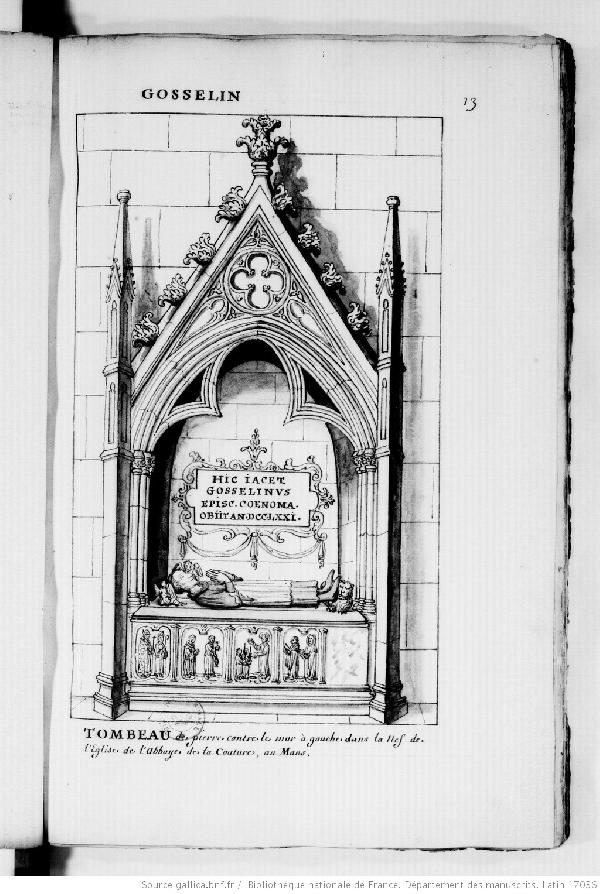 GOSSELIN
13
HIC IACET
GOSSELINVS
EPISC. COENOMA.
OBIIT AN. DCCLXXI.
TOMBEAU de pierre contre le mur à gauche dans la Nef de
l'Eglise de l'Abbaye de la Couture, au Mans.
Source gallica.bnf.fr / Bibliothèque nationale de France. Département des manuscrits. Latin 17036